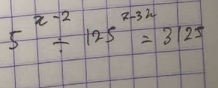 5^{x-2} ÷ 125^{2-3x} = 3125